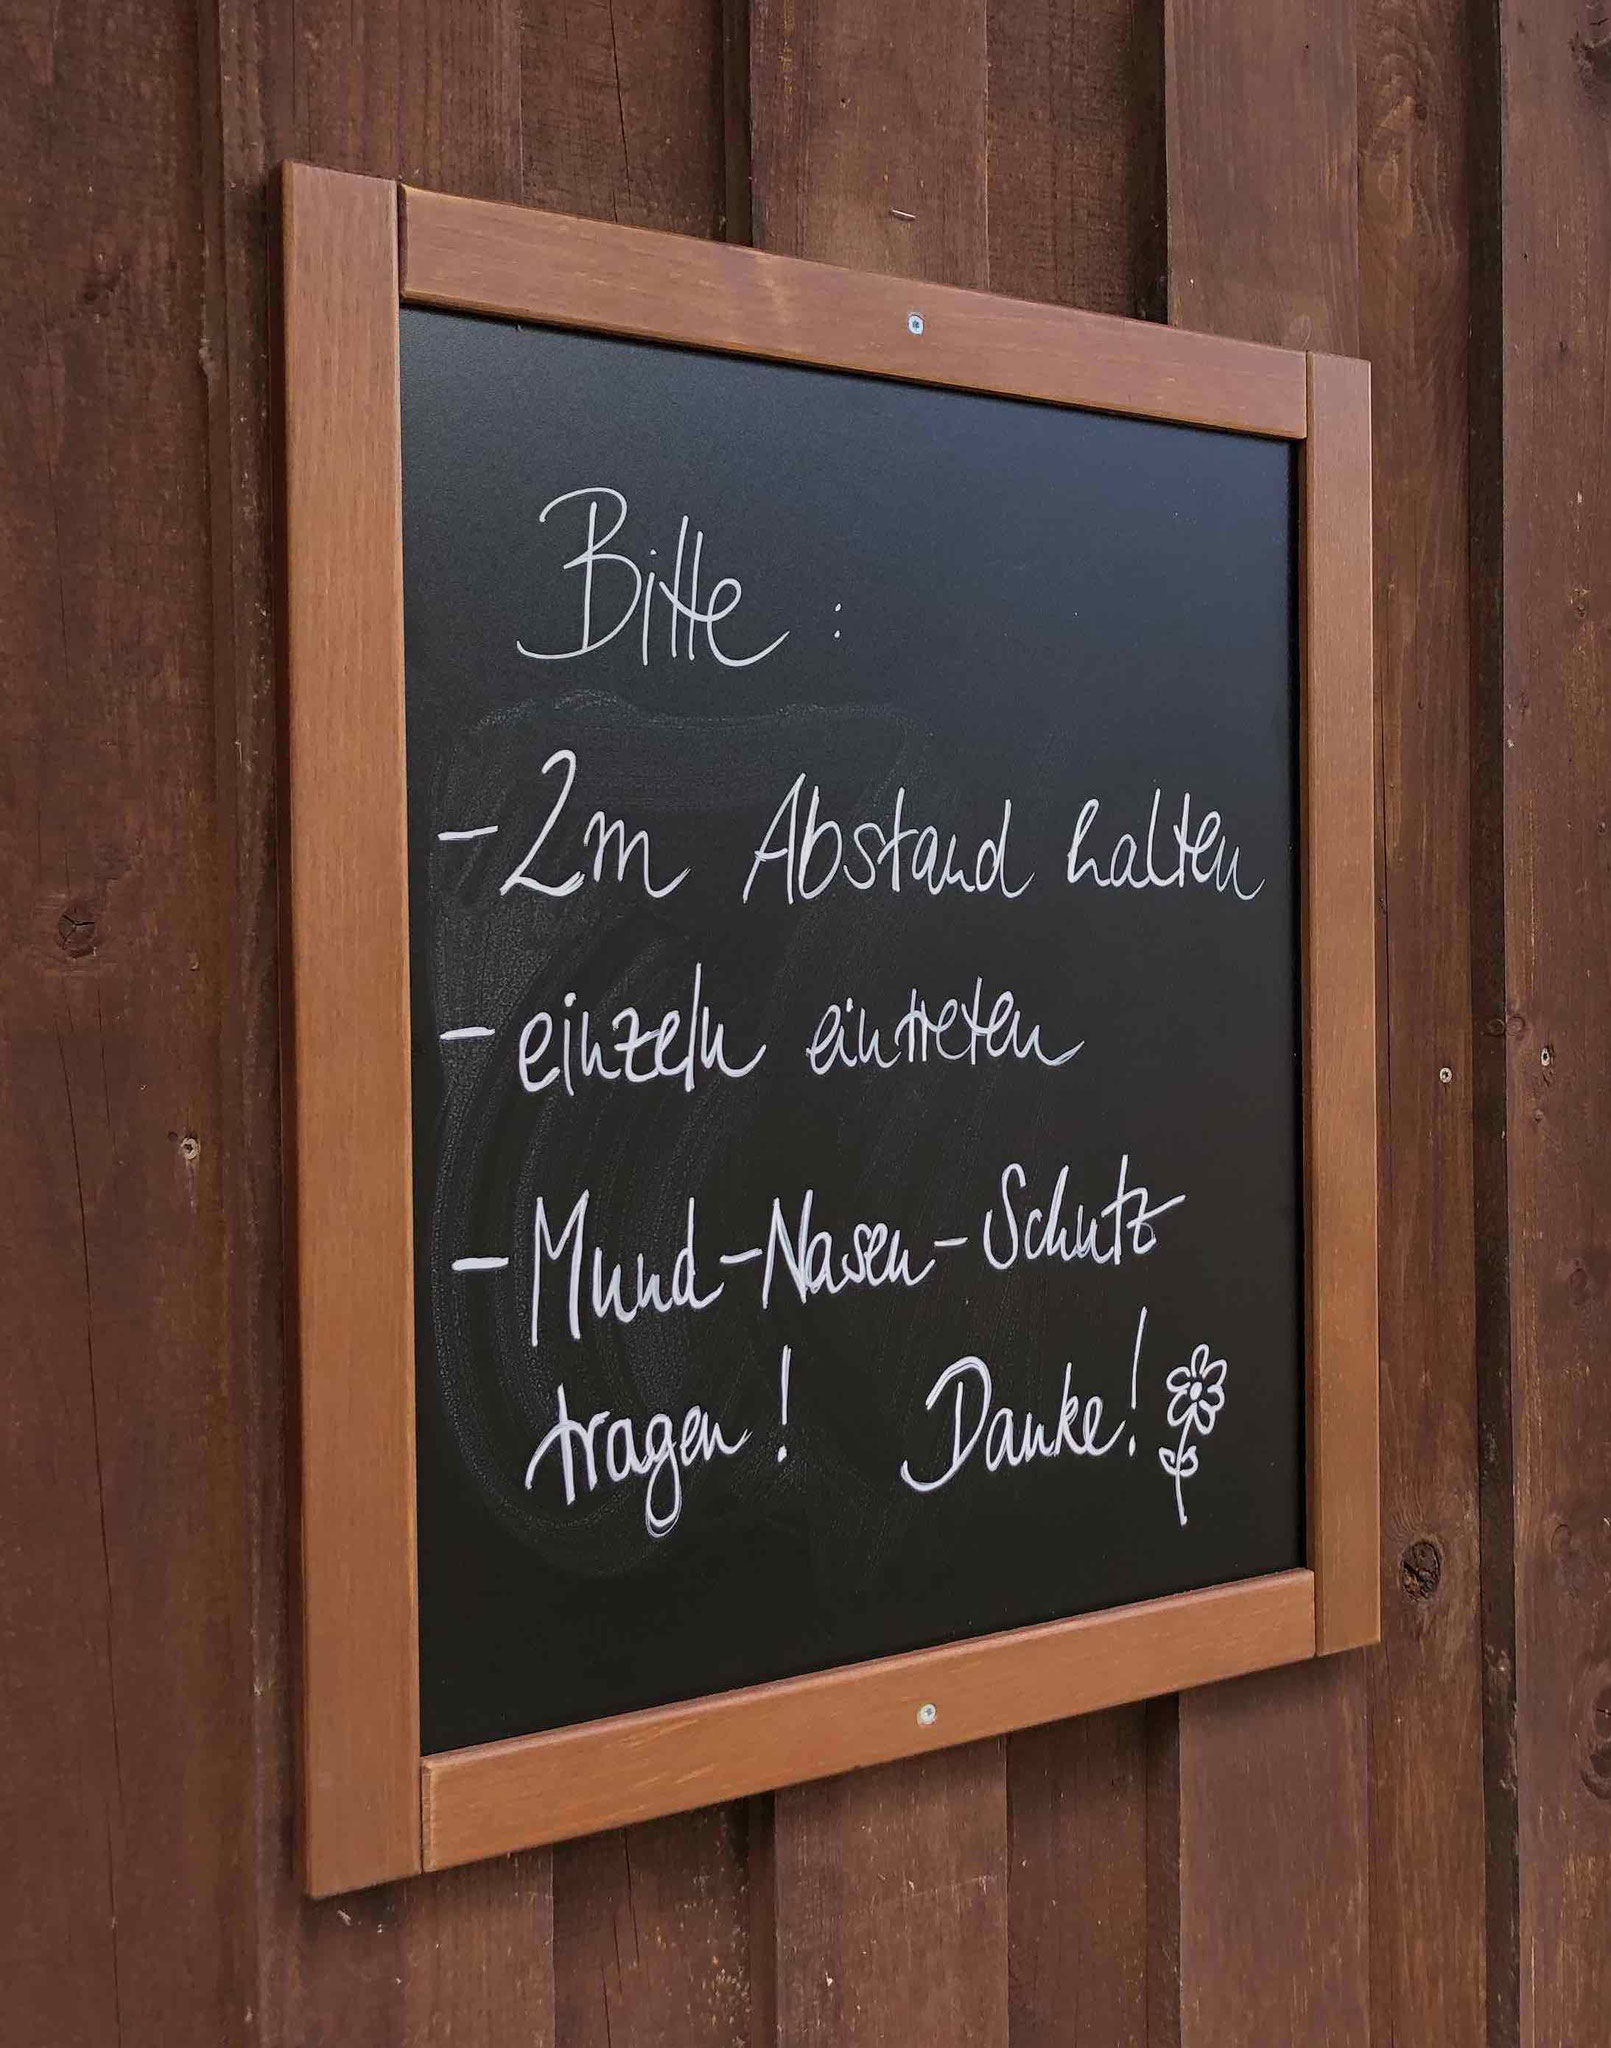 Bitte :
- 2m Abstand halten
- einzeln eintreten
- Mund-Nasen-Schutz
tragen! Danke!